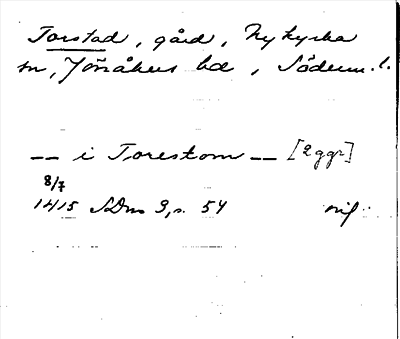 Torstad, gård, Nykyrka
sn, Jönåkers hd, Söderm.l.
-- i Torestom -- [2 ggr]
8/7
1415 SDns 3, s. 54